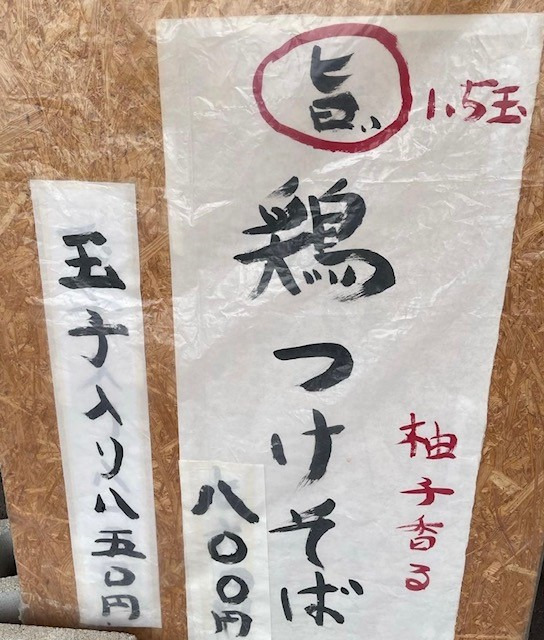 旨い
1.5玉
鶏つけそば
柚子香る
八〇〇円
玉子入り八五〇円